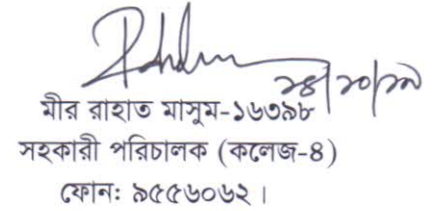 ২৪/১০/১৯
মীর রাহাত মাসুম-১৬৩৯৮
সহকারী পরিচালক (কলেজ-৪)
ফোনঃ ৯৫৫৬০৬২।